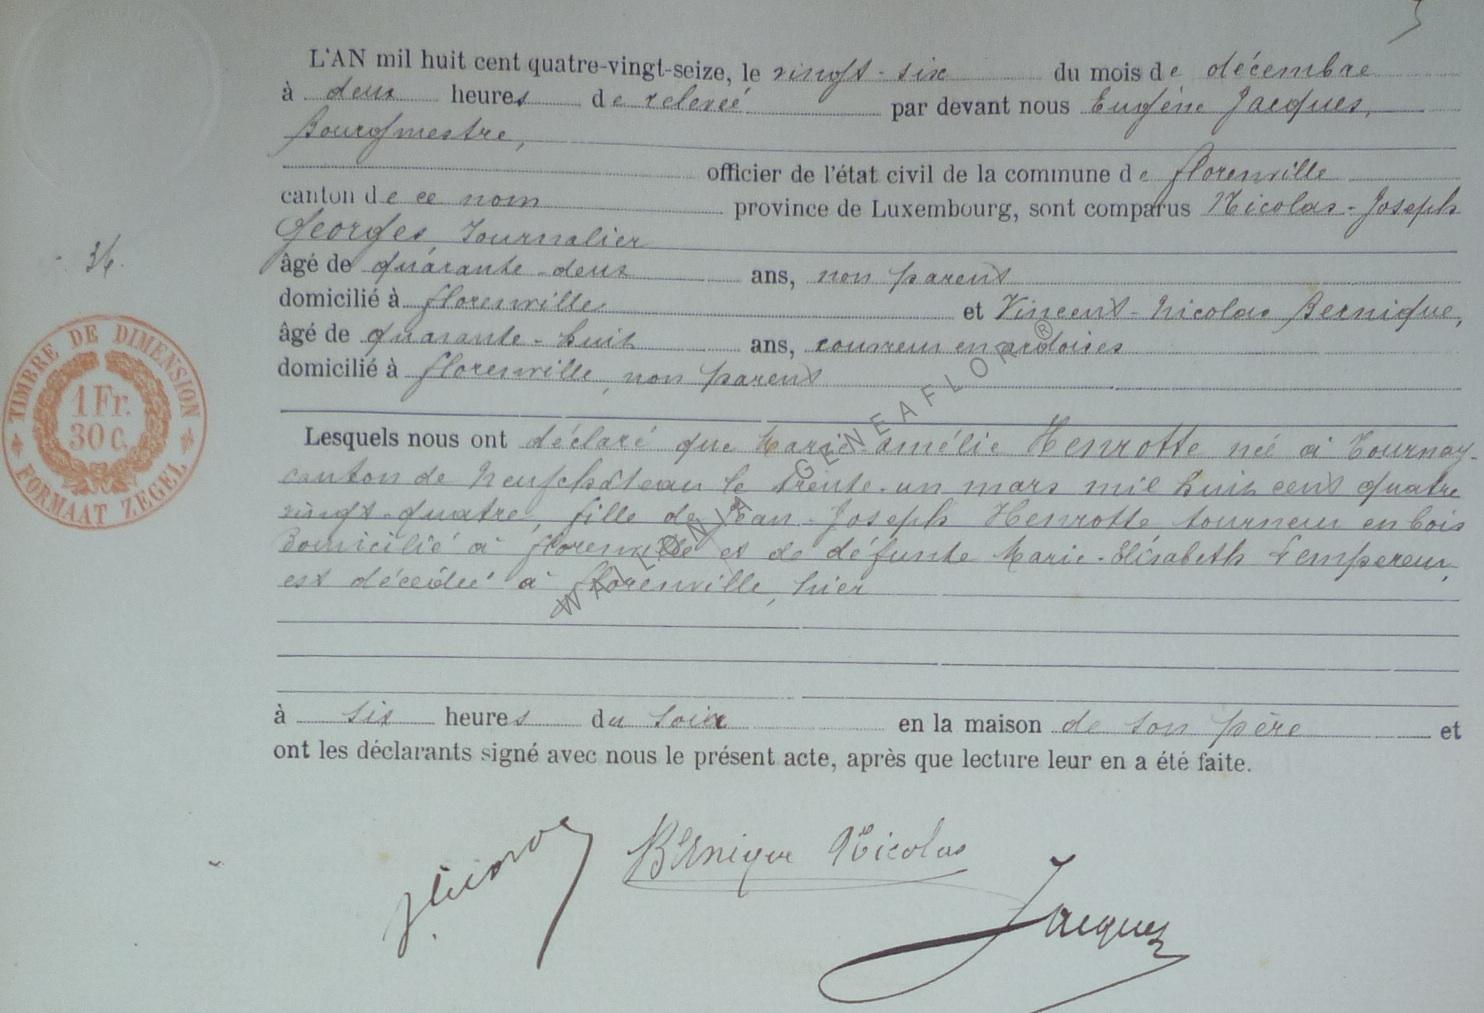 L'AN mil huit cent quatre-vingt-seize, le vingt-six du mois de décembre
à deux heures de relevée par devant nous Eugène Jacques,
Bourgmestre,
officier de l'état civil de la commune de florenville
canton de ce nom province de Luxembourg, sont comparus Nicolas-Joseph
Georges, Journalier
34.
âgé de quarante-deux ans, non parent
domicilié à florenville et Vincent-Nicolas Bernique,
âgé de quarante-huit ans, couvreur en ardoises
domicilié à florenville, non parent
TIMBRE DE DIMENSION
1 Fr.
30 C.
FORMAAT ZEGEL
Lesquels nous ont déclaré que Marie-amélie Henrotte née à Tournay-
canton de Neufchâteau le trente-un mars mil huit cent quatre
vingt-quatre, fille de Jean-Joseph Henrotte tourneur en bois
Domicilié à florenville et de défunte Marie-Elisabeth Lempereur,
est décédée à florenville, hier
WALLONIA GENEAFLOR ®
à six heures du soir en la maison de son père et
ont les déclarants signé avec nous le présent acte, après que lecture leur en a été faite.
Bernique Nicolas
Jacques